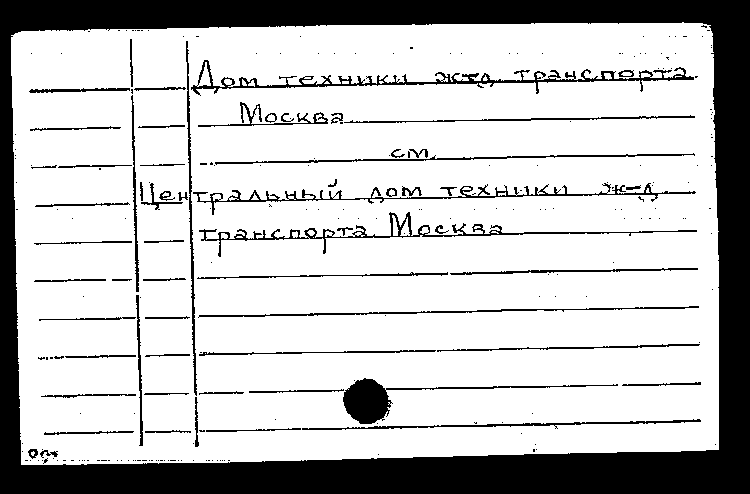 Дом техники ж-д транспорта
Москва
см.
Центральный дом техники ж-д
транспорта Москва